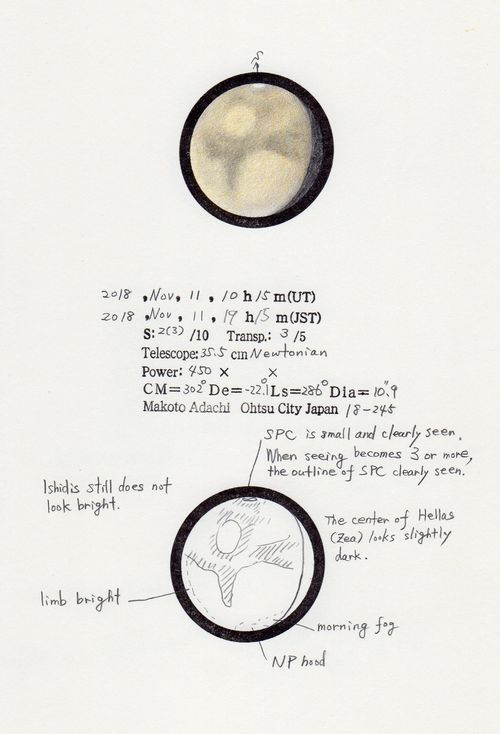 S
2018 , Nov, 11 , 10 h 15 m(UT)
2018 , Nov, 11 , 19 h 15 m(JST)
S: 2(3) /10 Transp.: 3 /5
Telescope: 35.5 cm Newtonian
Power: 450 × ×
CM=302° De=-22.1° Ls=286° Dia=10".9
Makoto Adachi Ohtsu City Japan 18-245
SPC is small and clearly seen.
When seeing becomes 3 or more,
the outline of SPC clearly seen.
Ishidis still does not
look bright.
The center of Hellas
(Zea) looks slightly
dark.
limb bright
morning fog
NP hood